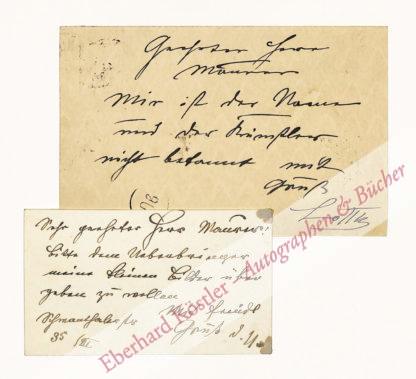 Geehrter Herr
Maurer
Mir ist der Name
und der Künstler
nicht bekannt mit
Gruß
Sehr geehrter Herr Maurer!
bitte dem Ueberbringer
meine kleinen Bilder über
geben zu wollen
Schwanthalerstr
Gruß
35 III
Eberhard Köstler - Autographen & Bücher